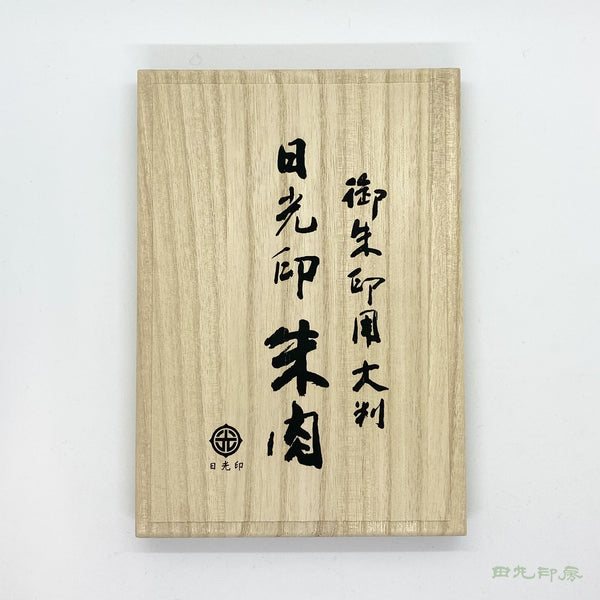 御朱印用大判
日光印朱肉
日光印
田丸印房